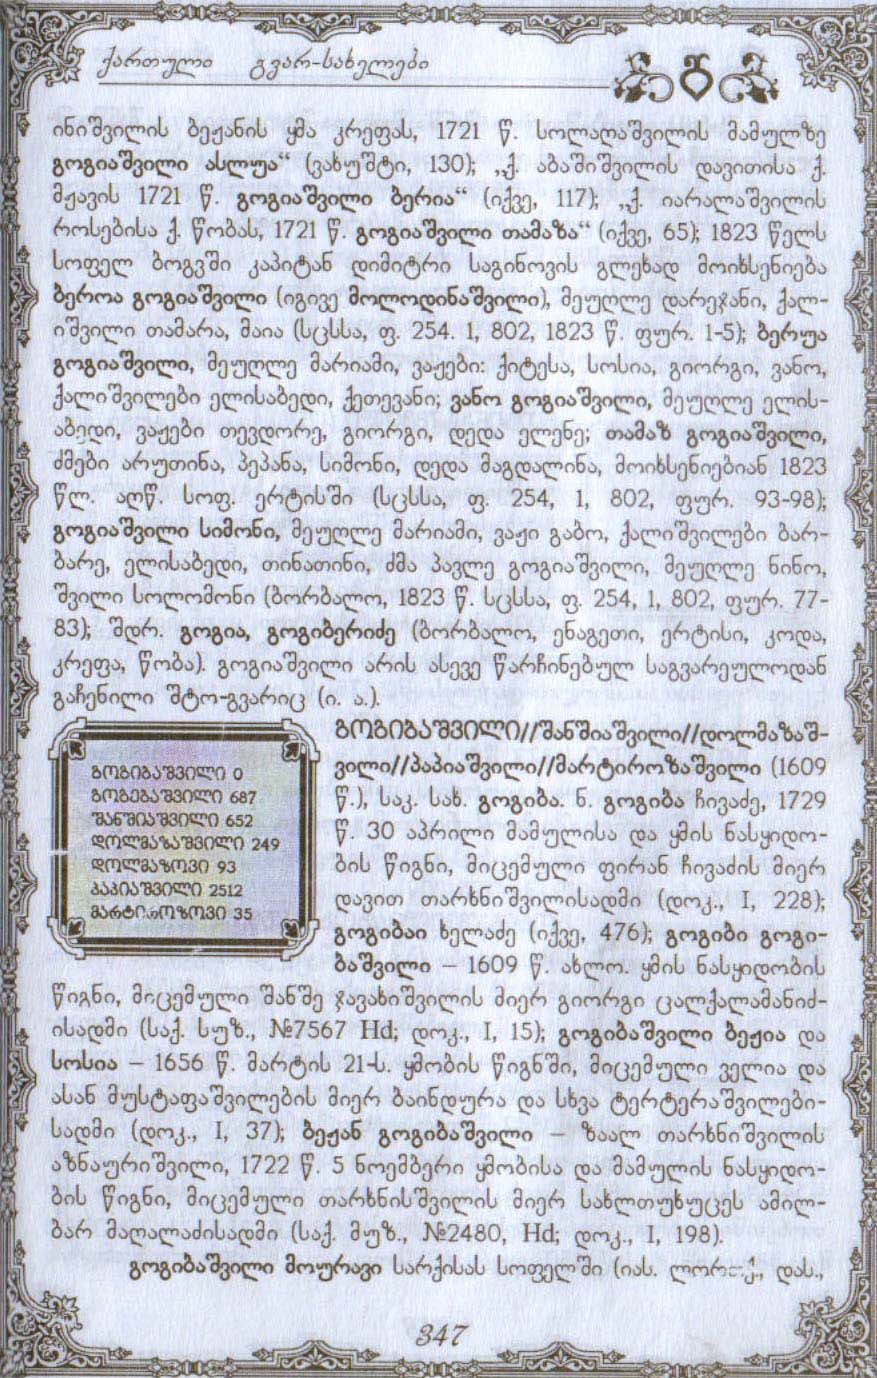 ქართული გვარ-სახელები
ინიშვილის ბეჟანის ყმა კრეფას, 1721 წ. სოლაღაშვილის მამულზე
გოგიაშვილი ასლუა“ (ვახუშტი, 130); „ქ. აბაშიშვილის დავითისა ქ.
მჟავის 1721 წ. გოგიაშვილი ბერია“ (იქვე, 117); „ქ. იარალაშვილის
როსებისა ქ. წობას, 1721 წ. გოგიაშვილი თამაზა“ (იქვე, 65); 1823 წელს
სოფელ ბოგვში კაპიტან დიმიტრი საგინოვის გლეხად მოიხსენიება
ბეროა გოგიაშვილი (იგივე მოლოდინაშვილი), მეუღლე დარეჯანი, ქალ-
იშვილი თამარა, მაია (სცსსა, ფ. 254. 1, 802, 1823 წ. ფურ. 1-5); ბერუა
გოგიაშვილი, მეუღლე მარიამი, ვაჟები: ქიტესა, სოსია, გიორგი, ვანო,
ქალიშვილები ელისაბედი, ქეთევანი; ვანო გოგიაშვილი, მეუღლე ელის-
აბედი, ვაჟები თევდორე, გიორგი, დედა ელენე; თამაზ გოგიაშვილი,
ძმები არუთინა, პეპანა, სიმონი, დედა მაგდალინა, მოიხსენიებიან 1823
წლ. აღწ. სოფ. ერტისში (სცსსა, ფ. 254, 1, 802, ფურ. 93-98);
გოგიაშვილი სიმონი, მეუღლე მარიამი, ვაჟი გაბო, ქალიშვილები ბარ-
ბარე, ელისაბედი, თინათინი, ძმა პავლე გოგიაშვილი, მეუღლე ნინო,
შვილი სოლომონი (ბორბალო, 1823 წ. სცსსა, ფ. 254, 1, 802, ფურ. 77-
83); შდრ. გოგია, გოგიბერიძე (ბორბალო, ენაგეთი, ერტისი, კოდა,
კრეფა, წობა). გოგიაშვილი არის ასევე წარჩინებულ საგვარეულოდან
გაჩენილი შტო-გვარიც (ი. ა.).
გოგიბაშვილი 0
გოგებაშვილი 687
შანშიაშვილი 652
დოლმაზაშვილი 249
დოლმაზოვი 93
პაპიაშვილი 2512
მარტიროზოვი 35
გოგიბაშვილი//შანშიაშვილი//დოლმაზაშ-
ვილი//პაპიაშვილი//მარტიროზაშვილი (1609
წ.), საკ. სახ. გოგიბა. ნ. გოგიბა ჩივაძე, 1729
წ. 30 აპრილი მამულისა და ყმის ნასყიდო-
ბის წიგნი, მიცემული ფირან ჩივაძის მიერ
დავით თარხნიშვილისადმი (დოკ., I, 228);
გოგიბაი ხელაძე (იქვე, 476); გოგიბი გოგი-
ბაშვილი – 1609 წ. ახლო. ყმის ნასყიდობის
წიგნი, მიცემული შანშე ჯავახიშვილის მიერ გიორგი ცალქალამანიძ-
ისადმი (საქ. სუზ., №7567 Hd; დოკ., I, 15); გოგიბაშვილი ბეჟია და
სოსია – 1656 წ. მარტის 21-ს. ყმობის წიგნში, მიცემული ველია და
ასან მუსტაფაშვილების მიერ ბაინდურა და სხვა ტერტერაშვილები-
სადმი (დოკ., I, 37); ბეჟან გოგიბაშვილი – ზაალ თარხნიშვილის
აზნაურიშვილი, 1722 წ. 5 ნოემბერი ყმობისა და მამულის ნასყიდო-
ბის წიგნი, მიცემული თარხნისშვილის მიერ სახლთუხუცეს ამილ-
ბარ მაღალაძისადმი (საქ. მუზ., №2480, Hd; დოკ., I, 198).
გოგიბაშვილი მოურავი სარქისას სოფელში (იას. დას.,
347